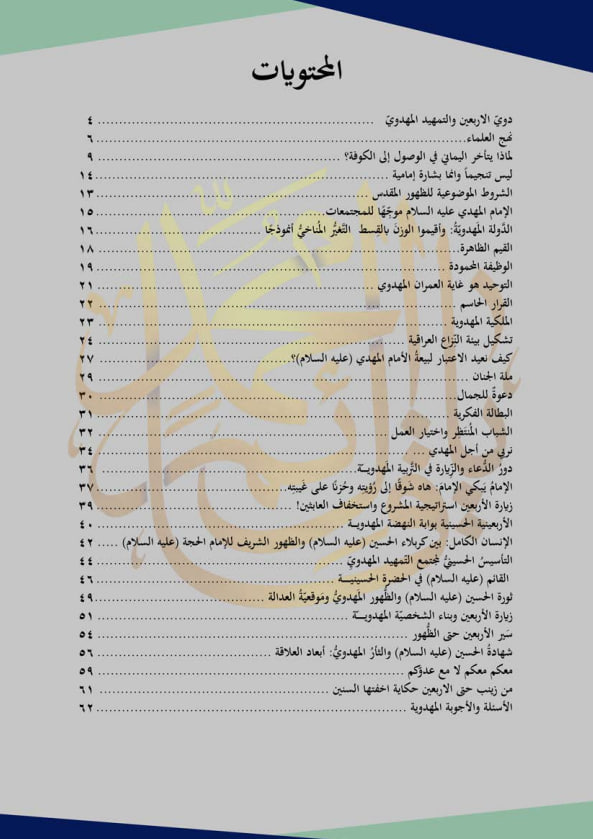 المحتويات
دويّ الاربعين والتمهيد المهدويّ ٤
نهج العلماء ٦
لماذا يتأخر اليماني في الوصول إلى الكوفة؟ ٩
ليس تنجيماً وانما بشارة إمامية ١٤
الشروط الموضوعية للظهور المقدس ١٣
الإمام المهدي عليه السلام موجّهًا للمجتمعات ١٥
الدَّولة المَهدويّةُ: وأقيموا الوزنَ بالقِسط التَّغيُّر المُناخيُّ أنموذجًا ١٦
القيم الظاهرة ١٨
الوظيفة المحمودة ١٩
التوحيد هو غاية العمران المهدوي ٢١
القرار الحاسم ٢٢
الملكية المهدوية ٢٣
تشكيل بيئة النّزاع العراقية ٢٤
كيف نعيد الاعتبار لبيعةُ الأمام المهدي (عليه السلام)؟ ٢٧
ملة الجنان ٢٩
دعوةٌ للجمال ٣٠
البطالة الفكرية ٣١
الشباب المُنتَظِر واختيار العمل ٣٢
نربي من أجل المهدي ٣٤
دورُ الدُّعاء والزّيارة في التَّربية المَهدويـّة ٣٦
الإمامُ يَبكي الإمامَ: هاه شَوقًا إلى رُؤيتِه وحُزنًا على غَيبتِه ٣٧
زيارة الأربعين استراتيجية المشروع واستخفاف العابثين! ٣٩
الأربعينية الحسينية بوابة النهضة المهدويـة ٤٠
الإنسان الكامل: بين كربلاء الحسين (عليه السلام) والظهور الشريف للإمام الحجة (عليه السلام) ٤٢
التأسيسُ الحسينيُّ لمجتمع التّمهيد المهدويّ ٤٤
القائم (عليه السلام) في الحضرة الحسينيـة ٤٦
ثورة الحسين (عليه السلام) والظُهور المَهدويُّ ومَوقعيّةُ العدالة ٤٩
زيارة الأربعين وبناء الشخصيّة المهدويـّة ٥١
سَير الأربعين حتى الظُّهور ٥٤
شهادةُ الحسين (عليه السلام) والثأرُ المهدويُّ: أبعاد العلاقة ٥٦
معكم معكم لا مع عدوّكم ٥٩
من زينب حتى الاربعين حكاية اخفتها السنين ٦١
الأسئلة والأجوبة المهدوية ٦٢